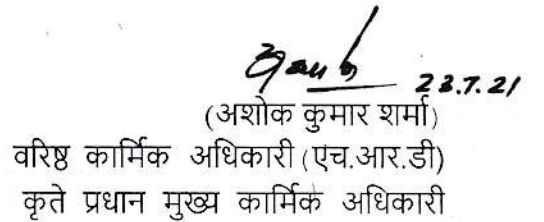 23.7.21
(अशोक कुमार शर्मा)
वरिष्ठ कार्मिक अधिकारी (एच.आर.डी)
कृते प्रधान मुख्य कार्मिक अधिकारी